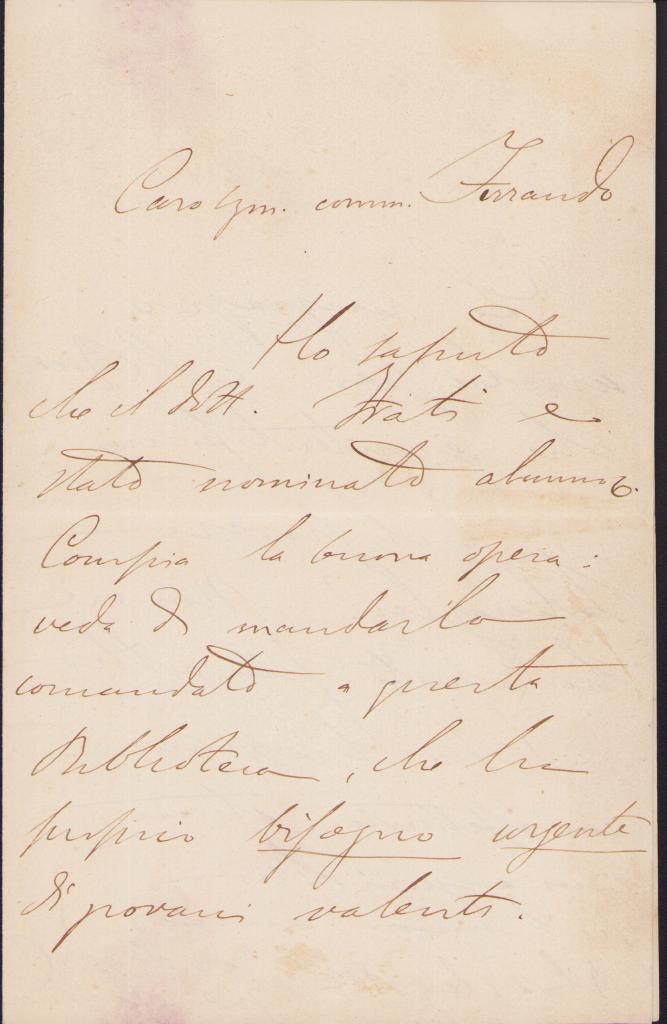 Caro sign. comm. Ferrando
Ho saputo
che il dott. Frati e
stato nominato alunno.
Compia la buona opera:
veda di mandarlo
comandato a questa
Biblioteca, che ha
proprio bisogno urgente
di giovani valenti.